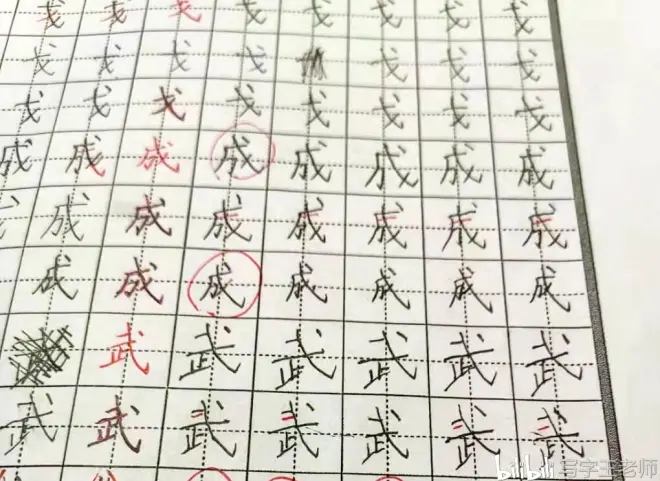 戈 戈 戈 戈 戈 戈 戈 戈
戈 戈 戈 戈 戈 戈 戈
戈 戈 戈 戈 戈 戈 戈 戈
成 成 成 成 成 成 成 成
成 成 成 成 成 成 成
成 成 成 成 成 成 成
武 武 武 武 武 武
武 武 武 武 武 武 武
bilibili 写字王老师